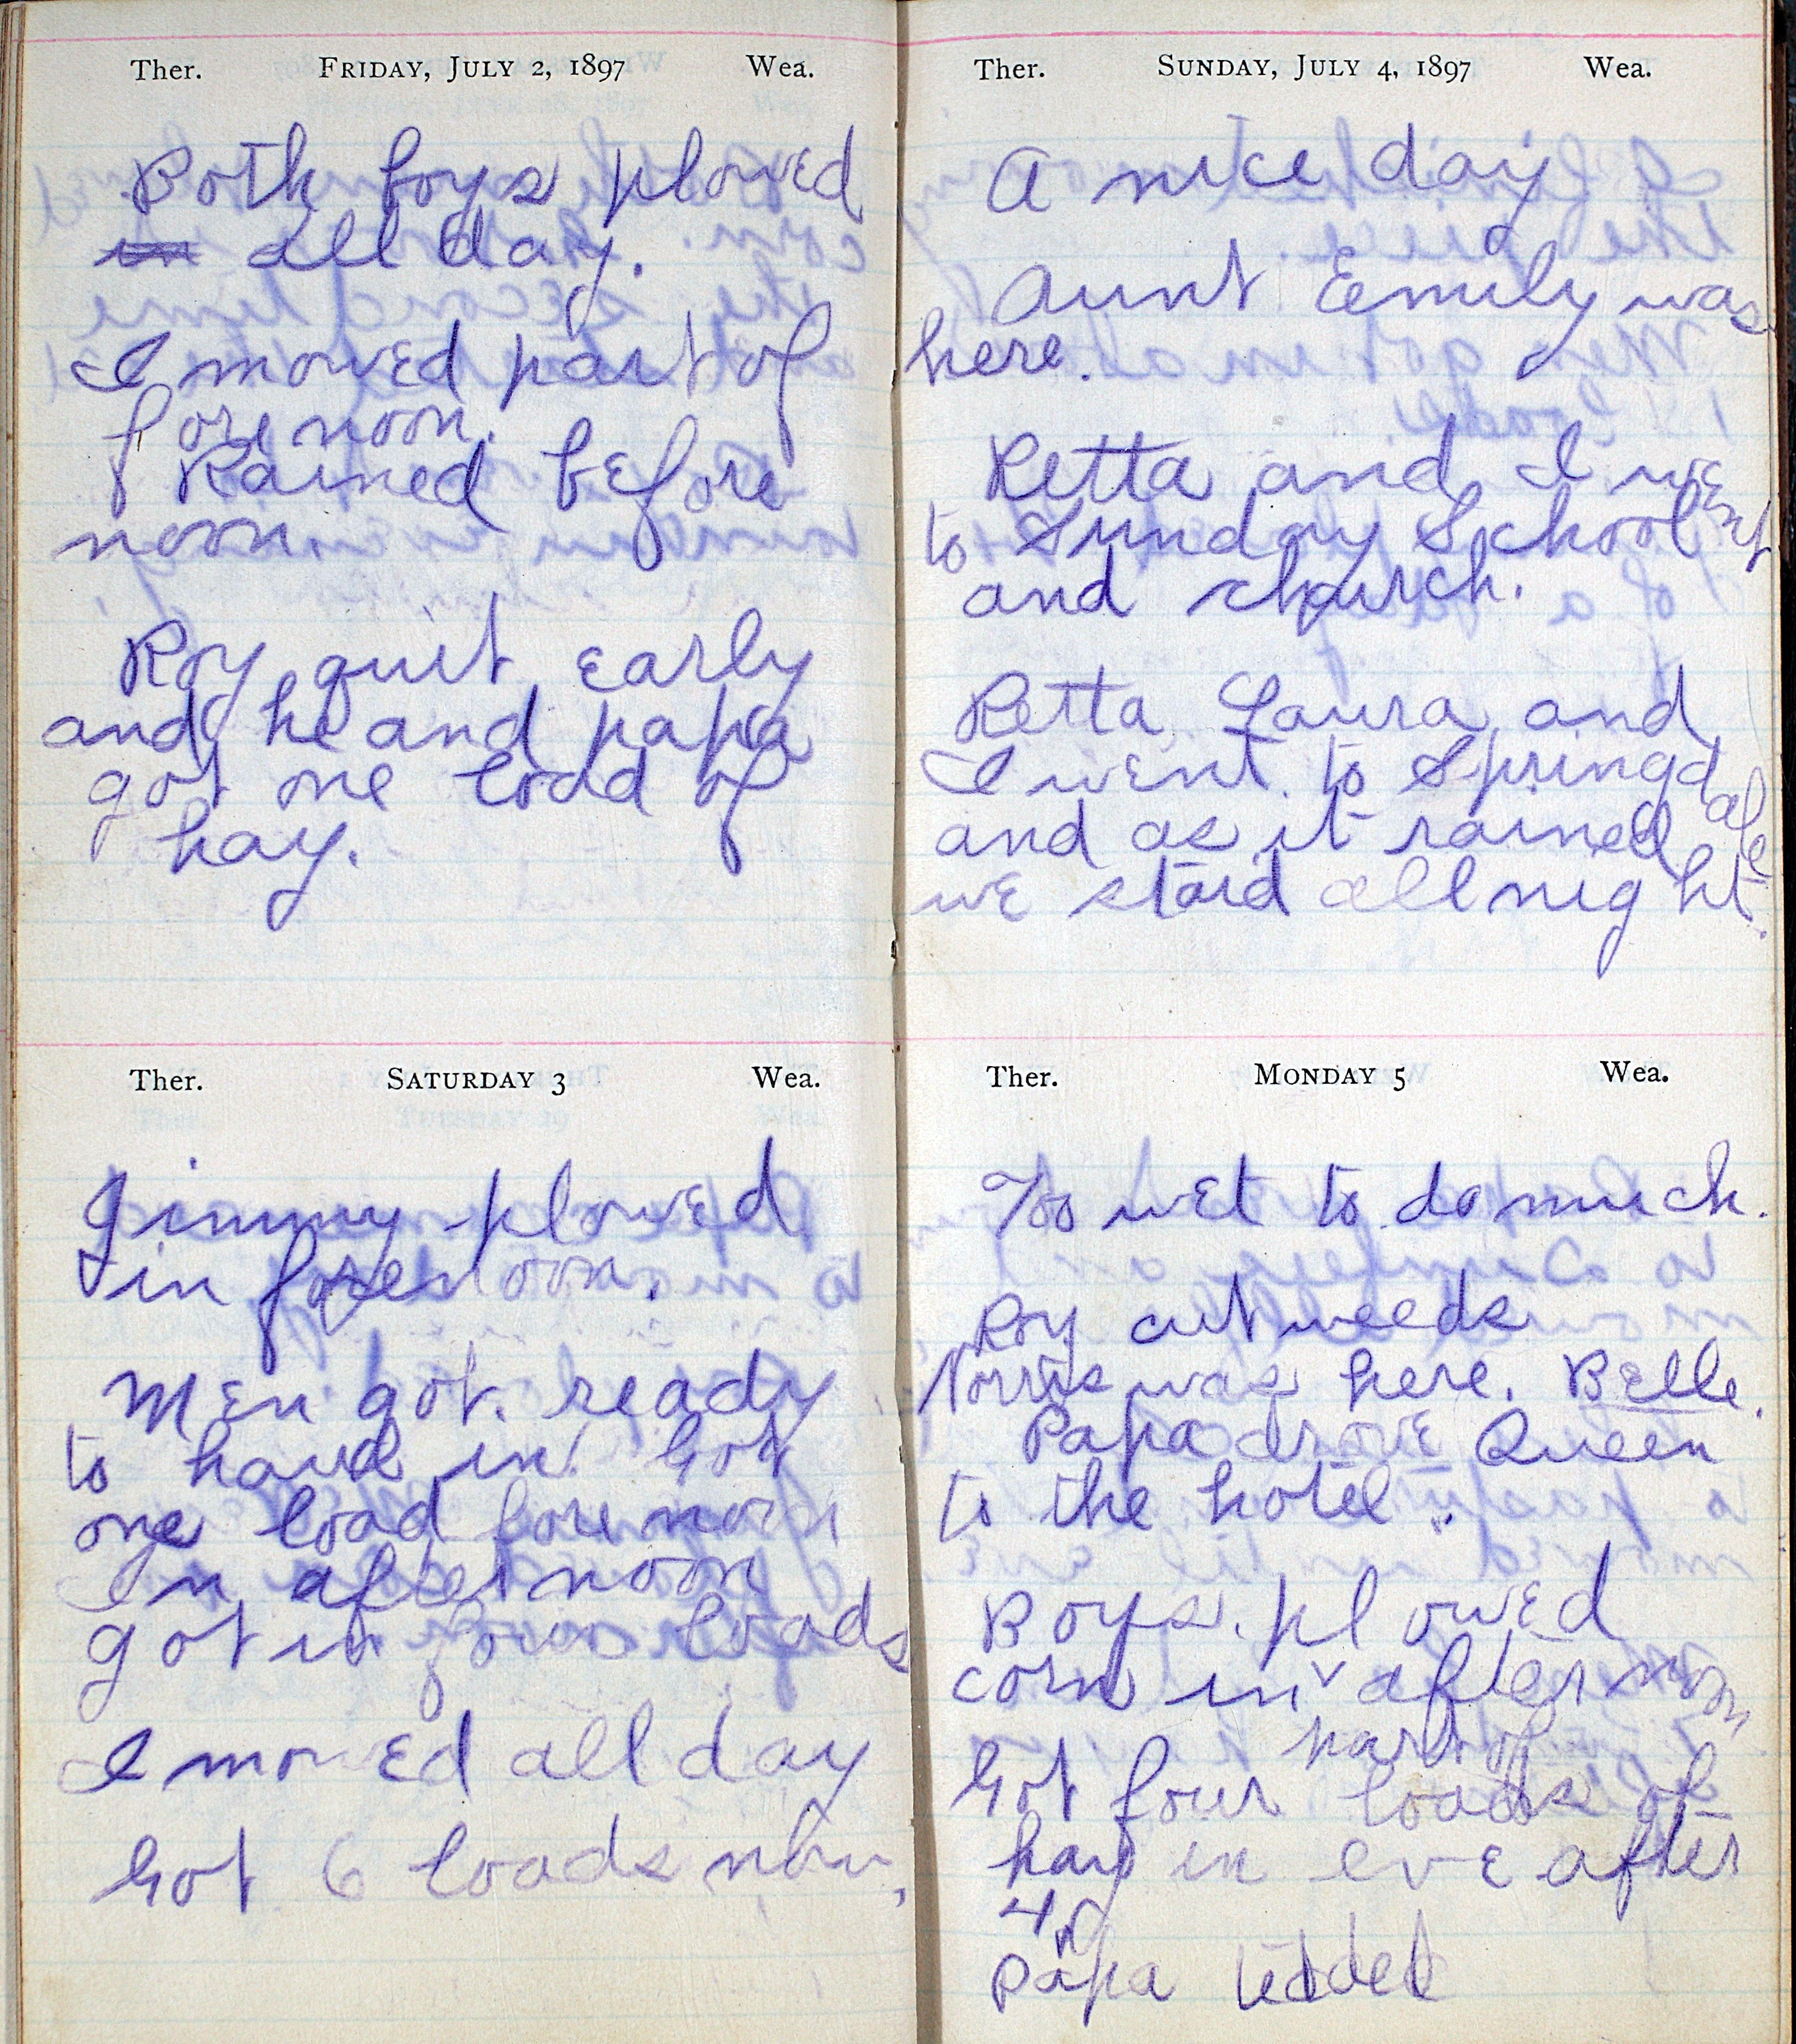 Ther. FRIDAY, JULY 2, 1897 Wea.
Both boys plowed
in all day.
I mowed part of
forenoon.
Rained before
noon.
Roy quit early
and he and papa
got one load of
hay.
Ther. SATURDAY 3 Wea.
Jimmy plowed
in forenoon.
Men got ready
to haul in. Got
one load forenoon
In afternoon
got in four loads
I mowed all day
Got 6 loads now.
Ther. SUNDAY, JULY 4, 1897 Wea.
A nice day
Aunt Emily was
here.
Retta and I went
to Sunday School
and church.
Retta Laura and
I went to Springdale
and as it rained
we staid all night.
Ther. MONDAY 5 Wea.
Too wet to do much.
Roy cut weeds
Norris was here. Belle.
Papa drove Queen
to the hotel.
Boys plowed
corn in part of afternoon
Got four loads of
hay in eve after
4.
Papa tedded